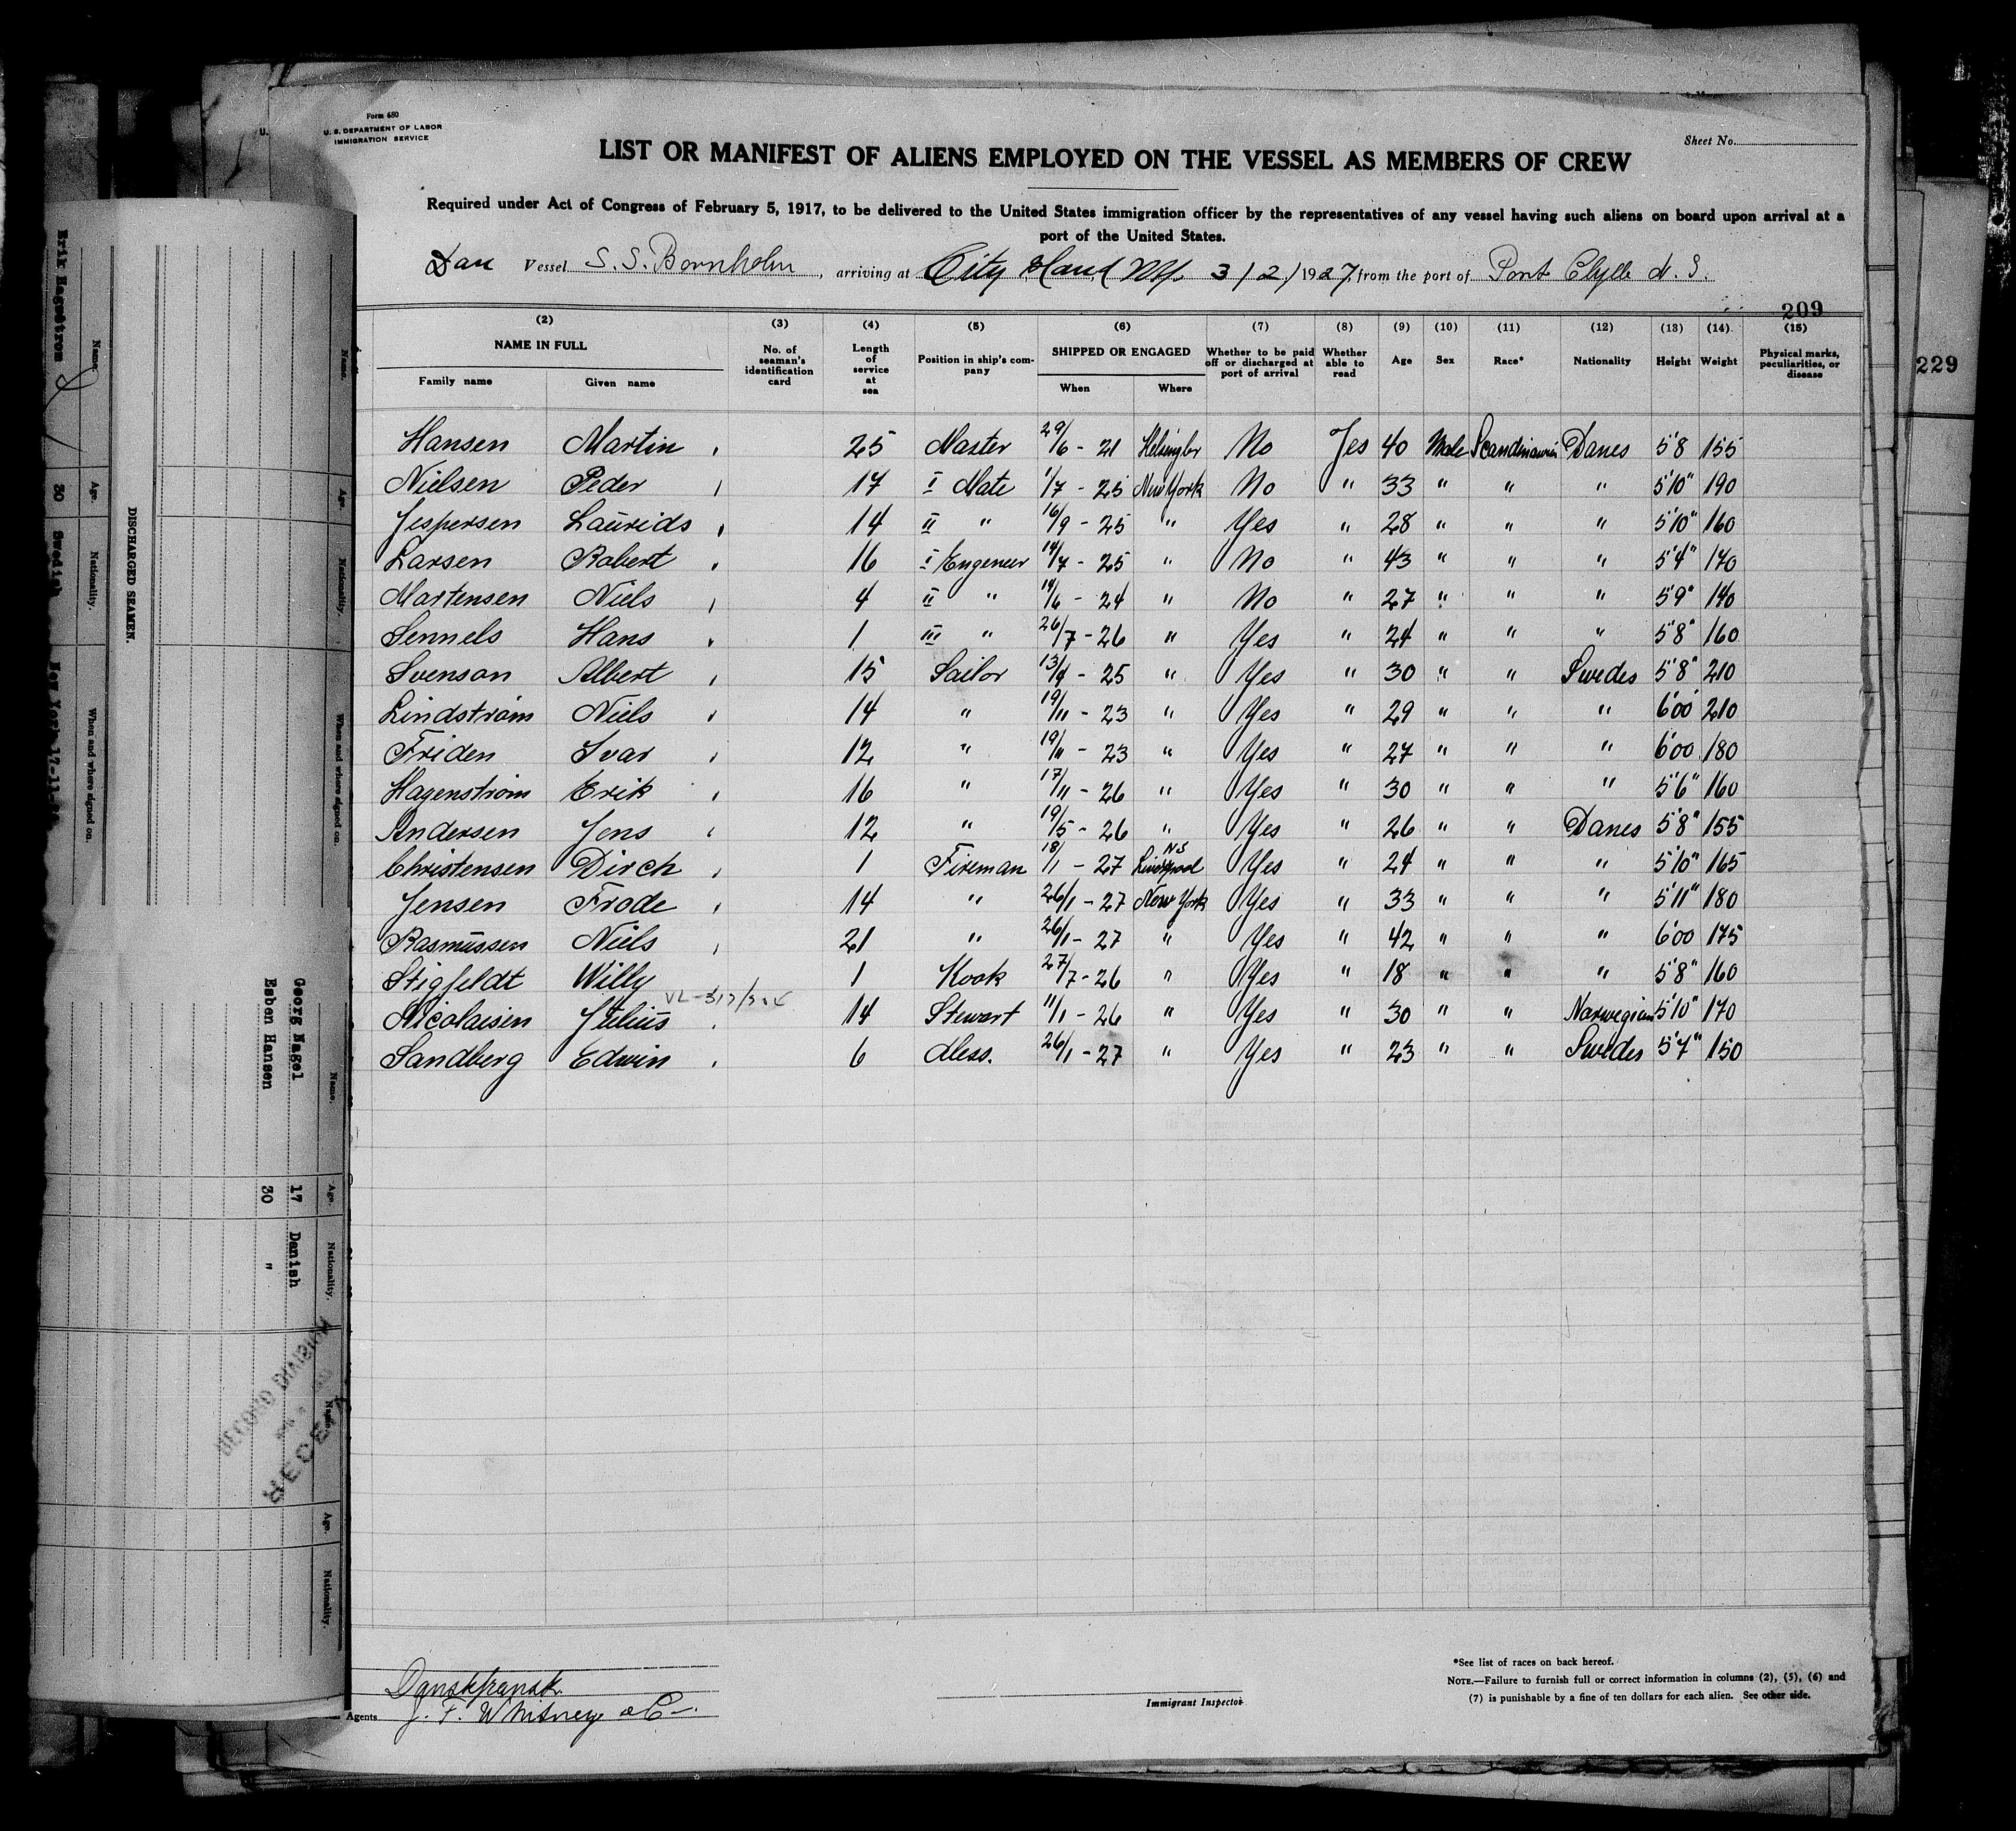 Form 680
U. S. DEPARTMENT OF LABOR
IMMIGRATION SERVICE
Sheet No.
LIST OR MANIFEST OF ALIENS EMPLOYED ON THE VESSEL AS MEMBERS OF CREW
Required under Act of Congress of February 5, 1917, to be delivered to the United States immigration officer by the representatives of any vessel having such aliens on board upon arrival at a
port of the United States.
Dan Vessel S.S. Bornholm, arriving at City Island NY. 3/2/1927, from the port of Port Clyde N.S.
209
(2) (3) (4) (5) (6) (7) (8) (9) (10) (11) (12) (13) (14) (15)
NAME IN FULL Family name Given name No. of seaman's identification card Length of service at sea Position in ship's company SHIPPED OR ENGAGED When Where Whether to be paid off or discharged at port of arrival Whether able to read Age Sex Race* Nationality Height Weight Physical marks, peculiarities, or disease
Hansen Martin 25 Master 29/6 - 21 Helsingör No Yes 40 Male Scandinavian Danes 5'8 155
Nielsen Peder 17 I Mate 1/7 - 25 New York No " 33 " " " 5'10" 190
Jespersen Laurids 14 II " 16/9 - 25 " Yes " 28 " " " 5'10" 160
Larsen Robert 16 I Engeneer 14/7 - 25 " No " 43 " " " 5'4" 170
Martensen Niels 4 II " 14/6 - 24 " No " 27 " " " 5'9" 140
Sennels Hans 1 III " 26/7 - 26 " Yes " 24 " " " 5'8" 160
Svenson Albert 15 Sailor 13/9 - 25 " Yes " 30 " " Swedes 5'8" 210
Lindström Niels 14 " 19/11 - 23 " Yes " 29 " " " 6'00 210
Friden Ivar 12 " 19/11 - 23 " Yes " 27 " " " 6'00 180
Hagenström Erik 16 " 17/11 - 26 " Yes " 30 " " " 5'6" 160
Andersen Jens 12 " 19/5 - 26 " Yes " 26 " " Danes 5'8" 155
Christensen Dirch 1 Fireman 18/1 - 27 Liverpool NS Yes " 24 " " " 5'10" 165
Jensen Frode 14 " 26/1 - 27 New York Yes " 33 " " " 5'11" 180
Rasmussen Niels 21 " 26/1 - 27 " Yes " 42 " " " 6'00 175
Stigfeldt Willy 1 Kook 27/7 - 26 " Yes " 18 " " " 5'8" 160
Nicolaisen Julius 14 Stewart 11/1 - 26 " Yes " 30 " " Norwegian 5'10" 170
Sandberg Edwin 6 Mess. 26/1 - 27 " Yes " 23 " " Swedes 5'7" 150
J. F. Whitney & Co.
Agents
Immigrant Inspector
*See list of races on back hereof.
NOTE.—Failure to furnish full or correct information in columns (2), (5), (6) and
(7) is punishable by a fine of ten dollars for each alien. See other side.
229
DISCHARGED SEAMEN.
Name. Age. Nationality. When and where signed on.
Erik Hagestrom 30 Swedish
Name. Age. Nationality. When and where signed on.
Name. Age. Nationality.
Georg Nagel 17 Danish
Esben Hansen 30 "
RECORD DIVISION
Name. Age. Nationality